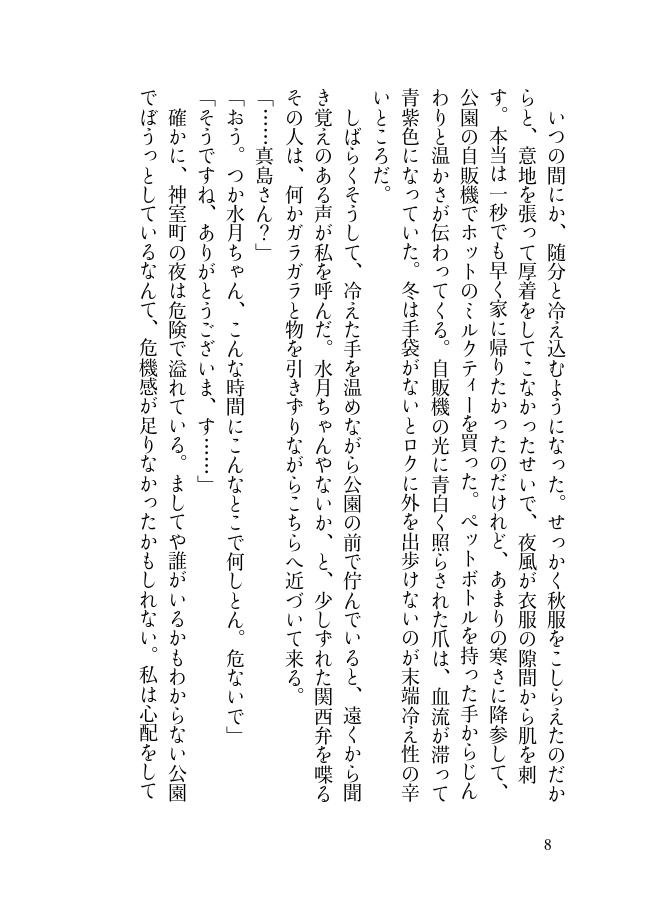 いつの間にか、随分と冷え込むようになった。せっかく秋服をこしらえたのだか
らと、意地を張って厚着をしてこなかったせいで、夜風が衣服の隙間から肌を刺
す。本当は一秒でも早く家に帰りたかったのだけれど、あまりの寒さに降参して、
公園の自販機でホットのミルクティーを買った。ペットボトルを持った手からじん
わりと温かさが伝わってくる。自販機の光に青白く照らされた爪は、血流が滞って
青紫色になっていた。冬は手袋がないとロクに外を出歩けないのが末端冷え性の辛
いところだ。
しばらくそうして、冷えた手を温めながら公園の前で佇んでいると、遠くから聞
き覚えのある声が私を呼んだ。水月ちゃんやないか、と、少しずれた関西弁を喋る
その人は、何かガラガラと物を引きずりながらこちらへ近づいて来る。
「……真島さん？」
「おう。つか水月ちゃん、こんな時間にこんなとこで何しとん。危ないで」
「そうですね、ありがとうございま、す……」
確かに、神室町の夜は危険で溢れている。ましてや誰がいるかもわからない公園
でぼうっとしているなんて、危機感が足りなかったかもしれない。私は心配をして
8